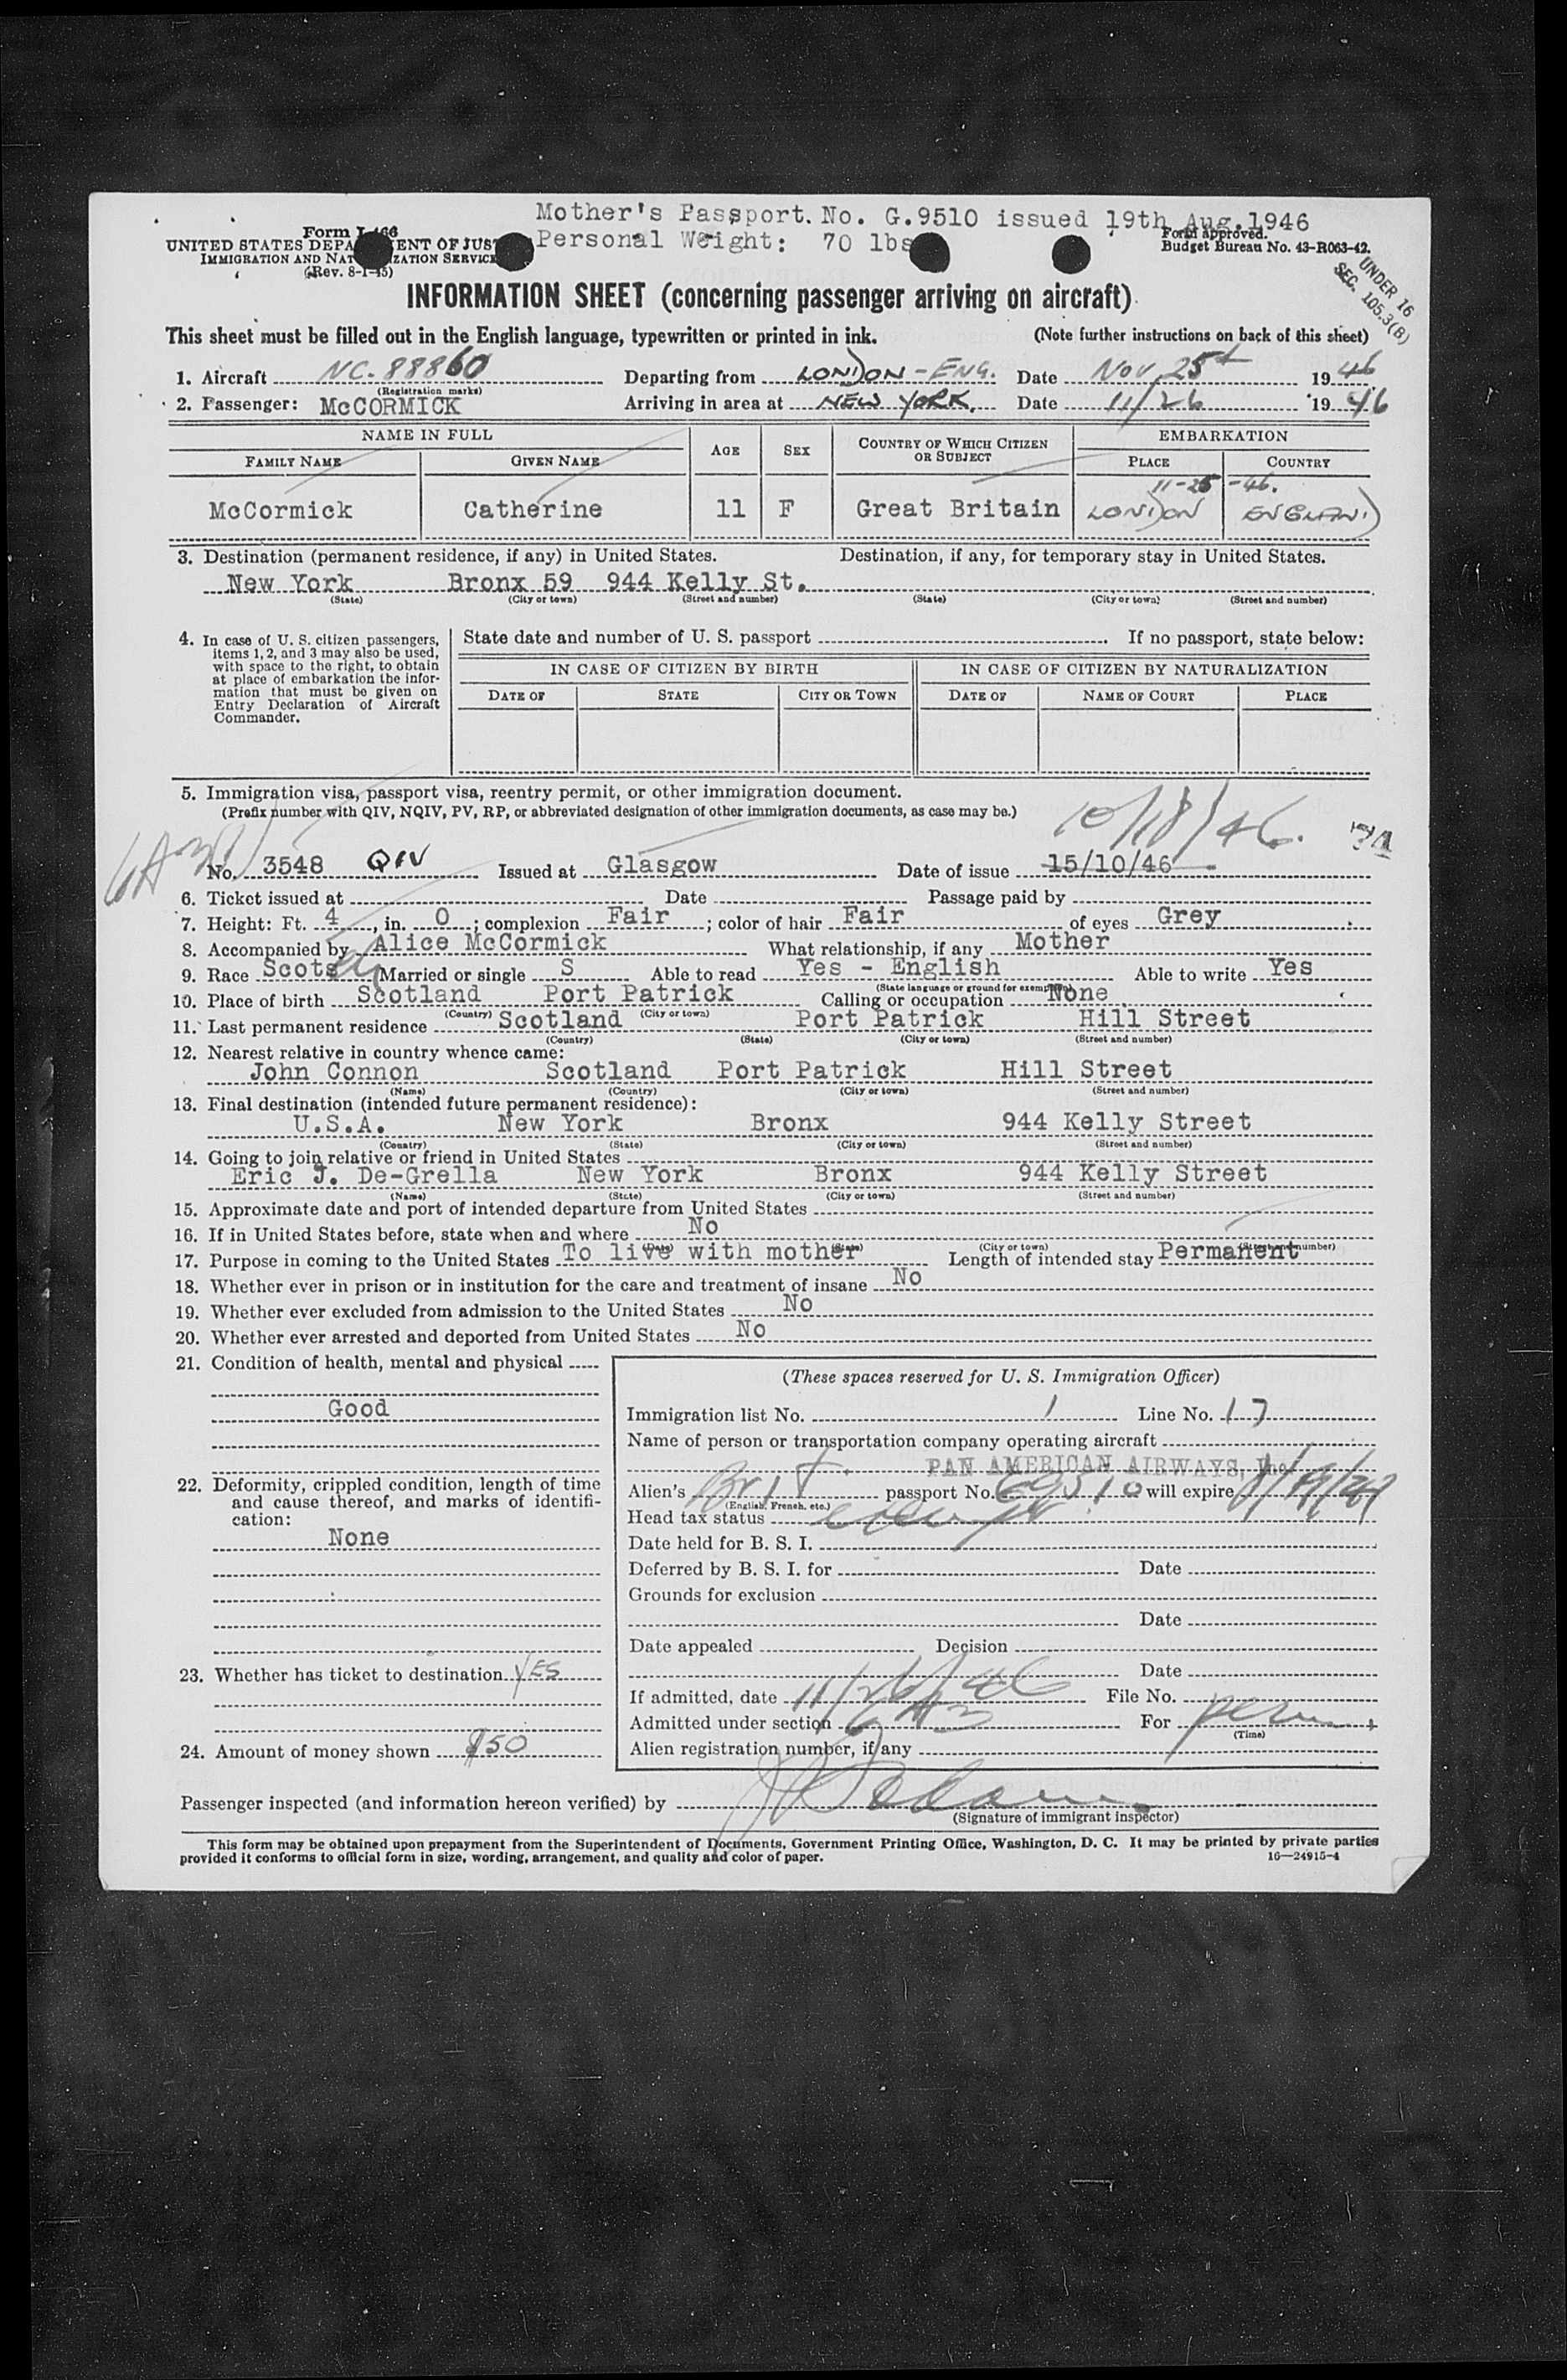 Mother's Passport. No. G.9510 issued 19th Aug. 1946
Personal Weight: 70 lbs
Form
UNITED STATES
IMMIGRATION AND
(Rev. 8-1-45)
Form approved.
Budget Bureau No. 43-R063-42.
UNDER 16
SEC. 105.3(B)
INFORMATION SHEET (concerning passenger arriving on aircraft)
This sheet must be filled out in the English language, typewritten or printed in ink. (Note further instructions on back of this sheet)
1. Aircraft NC-88860 Departing from LONDON-ENG. Date Nov 25 1946
(Registration marks)
2. Passenger: McCORMICK Arriving in area at NEW YORK. Date 11/26 1946
NAME IN FULL AGE SEX COUNTRY OF WHICH CITIZEN OR SUBJECT EMBARKATION
FAMILY NAME GIVEN NAME PLACE COUNTRY
11-25-46.
McCormick Catherine 11 F Great Britain LONDON ENGLAND
3. Destination (permanent residence, if any) in United States. Destination, if any, for temporary stay in United States.
New York Bronx 59 944 Kelly St.
(State) (City or town) (Street and number) (State) (City or town) (Street and number)
4. In case of U. S. citizen passengers,
items 1, 2, and 3 may also be used,
with space to the right, to obtain
at place of embarkation the infor-
mation that must be given on
Entry Declaration of Aircraft
Commander.
State date and number of U. S. passport If no passport, state below:
IN CASE OF CITIZEN BY BIRTH IN CASE OF CITIZEN BY NATURALIZATION
DATE OF STATE CITY OR TOWN DATE OF NAME OF COURT PLACE
5. Immigration visa, passport visa, reentry permit, or other immigration document.
(Prefix number with QIV, NQIV, PV, RP, or abbreviated designation of other immigration documents, as case may be.)
10/18/46.
No. 3548 QIV Issued at Glasgow Date of issue 15/10/46
6. Ticket issued at Date Passage paid by
7. Height: Ft. 4, in. 0; complexion Fair; color of hair Fair of eyes Grey
8. Accompanied by Alice McCormick What relationship, if any Mother
9. Race Scots Married or single S Able to read Yes - English Able to write Yes
(State language or ground for exemption)
10. Place of birth Scotland Port Patrick Calling or occupation None
(Country) (City or town)
11. Last permanent residence Scotland Port Patrick Hill Street
(Country) (State) (City or town) (Street and number)
12. Nearest relative in country whence came:
John Connon Scotland Port Patrick Hill Street
(Name) (Country) (City or town) (Street and number)
13. Final destination (intended future permanent residence):
U.S.A. New York Bronx 944 Kelly Street
(Country) (State) (City or town) (Street and number)
14. Going to join relative or friend in United States
Eric J. De-Grella New York Bronx 944 Kelly Street
(Name) (State) (City or town) (Street and number)
15. Approximate date and port of intended departure from United States
16. If in United States before, state when and where No
(Date) (State) (City or town) (Street and number)
17. Purpose in coming to the United States To live with mother Length of intended stay Permanent
18. Whether ever in prison or in institution for the care and treatment of insane No
19. Whether ever excluded from admission to the United States No
20. Whether ever arrested and deported from United States No
21. Condition of health, mental and physical
Good
22. Deformity, crippled condition, length of time
and cause thereof, and marks of identifi-
cation:
None
23. Whether has ticket to destination YES
24. Amount of money shown $50
(These spaces reserved for U. S. Immigration Officer)
Immigration list No. 1 Line No. 17
Name of person or transportation company operating aircraft
PAN AMERICAN AIRWAYS, Inc.
Alien's Brit. passport No. G9510 will expire
(English, French, etc.)
Head tax status exempt
Date held for B. S. I.
Deferred by B. S. I. for Date
Grounds for exclusion
Date
Date appealed Decision
Date
If admitted, date 11/26/46 File No.
Admitted under section 6A3 For perm.
(Time)
Alien registration number, if any
Passenger inspected (and information hereon verified) by
(Signature of immigrant inspector)
This form may be obtained upon prepayment from the Superintendent of Documents, Government Printing Office, Washington, D. C. It may be printed by private parties
provided it conforms to official form in size, wording, arrangement, and quality and color of paper. 16—24915-4